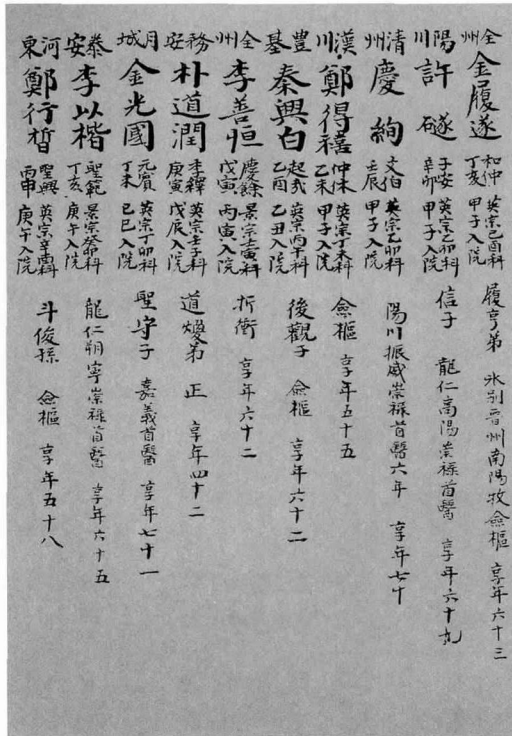 全州 金履遂 和仲 丁亥 英宗己酉科 甲子入院 履亨弟 氷別晋州南陽牧僉樞 享年六十三
陽川 許礈 子安 辛卯 英宗乙卯科 甲子入院 信子 龍仁高陽崇祿首醫 享年六十九
清州 慶絢 文伯 壬辰 英宗乙卯科 甲子入院 陽川振威崇祿首醫六年 享年七十
漢川 鄭得禧 仲休 乙未 英宗丁未科 甲子入院 僉樞 享年五十五
豊基 秦興白 起哉 乙酉 英宗丙午科 乙丑入院 後觀子 僉樞 享年六十二
全州 李善恒 慶餘 戊寅 景宗壬寅科 丙寅入院 折衝 享年六十二
務安 朴道潤 季繹 庚寅 英宗壬子科 戊辰入院 道燮弟 正 享年四十二
月城 金光國 元賓 丁未 英宗丁卯科 己巳入院 聖守子 嘉義首醫 享年七十一
泰安 李以楷 聖範 丁亥 景宗癸卯科 庚午入院 龍仁朔寧崇祿首醫 享年六十五
河東 鄭行晳 聖興 丙申 英宗辛酉科 庚午入院 斗俊孫 僉樞 享年五十八